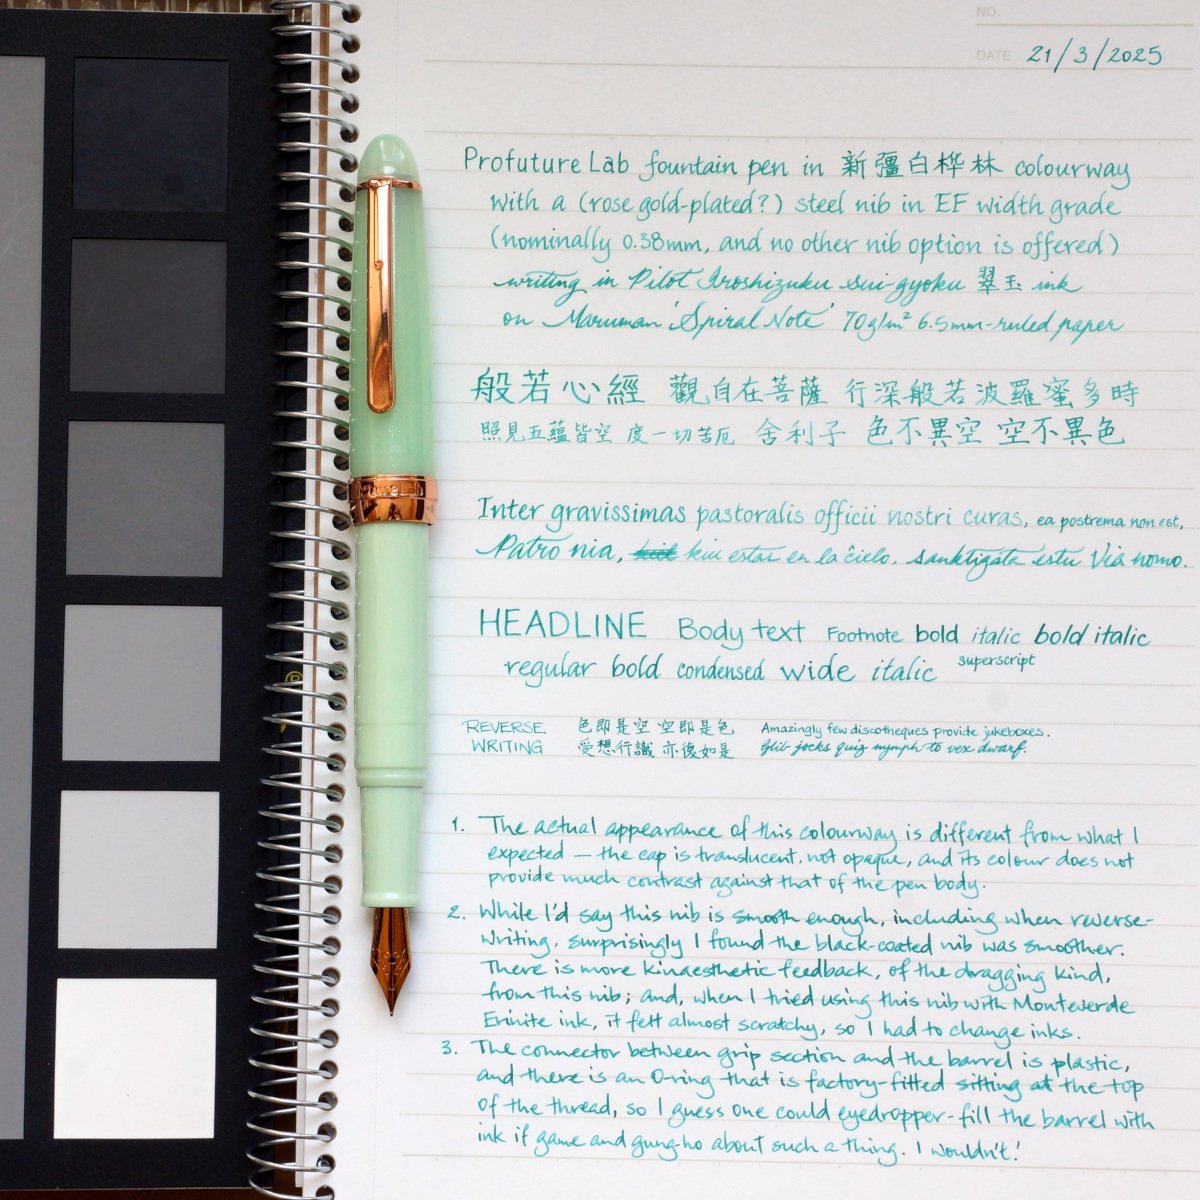 NO.
DATE 21/3/2025
Profuture Lab fountain pen in 新疆白桦林 colourway
with a (rose gold-plated?) steel nib in EF width grade
(nominally 0.38mm, and no other nib option is offered)
writing in Pilot Iroshizuku sui-gyoku 翠玉 ink
on Maruman 'Spiral Note' 70g/m² 6.5mm-ruled paper
般若心經 觀自在菩薩 行深般若波羅蜜多時
照見五蘊皆空 度一切苦厄 舍利子 色不異空 空不異色
Inter gravissimas pastoralis officii nostri curas, ea postrema non est,
Patro nia, kiu estas en la ĉielo, sanktigata estu Via nomo.
HEADLINE Body text Footnote bold italic bold italic
regular bold condensed wide italic superscript
REVERSE 色即是空 空即是色 Amazingly few discotheques provide jukeboxes.
WRITING 受想行識 亦復如是 Glib jocks quiz nymph to vex dwarf.
1. The actual appearance of this colourway is different from what I
expected — the cap is translucent, not opaque, and its colour does not
provide much contrast against that of the pen body.
2. While I'd say this nib is smooth enough, including when reverse-
writing, surprisingly I found the black-coated nib was smoother.
There is more kinaesthetic feedback, of the dragging kind,
from this nib; and, when I tried using this nib with Monteverde
Erinite ink, it felt almost scratchy, so I had to change inks.
3. The connector between grip section and the barrel is plastic,
and there is an O-ring that is factory-fitted sitting at the top
of the thread, so I guess one could eyedropper-fill the barrel with
ink if game and gung-ho about such a thing. I wouldn't!